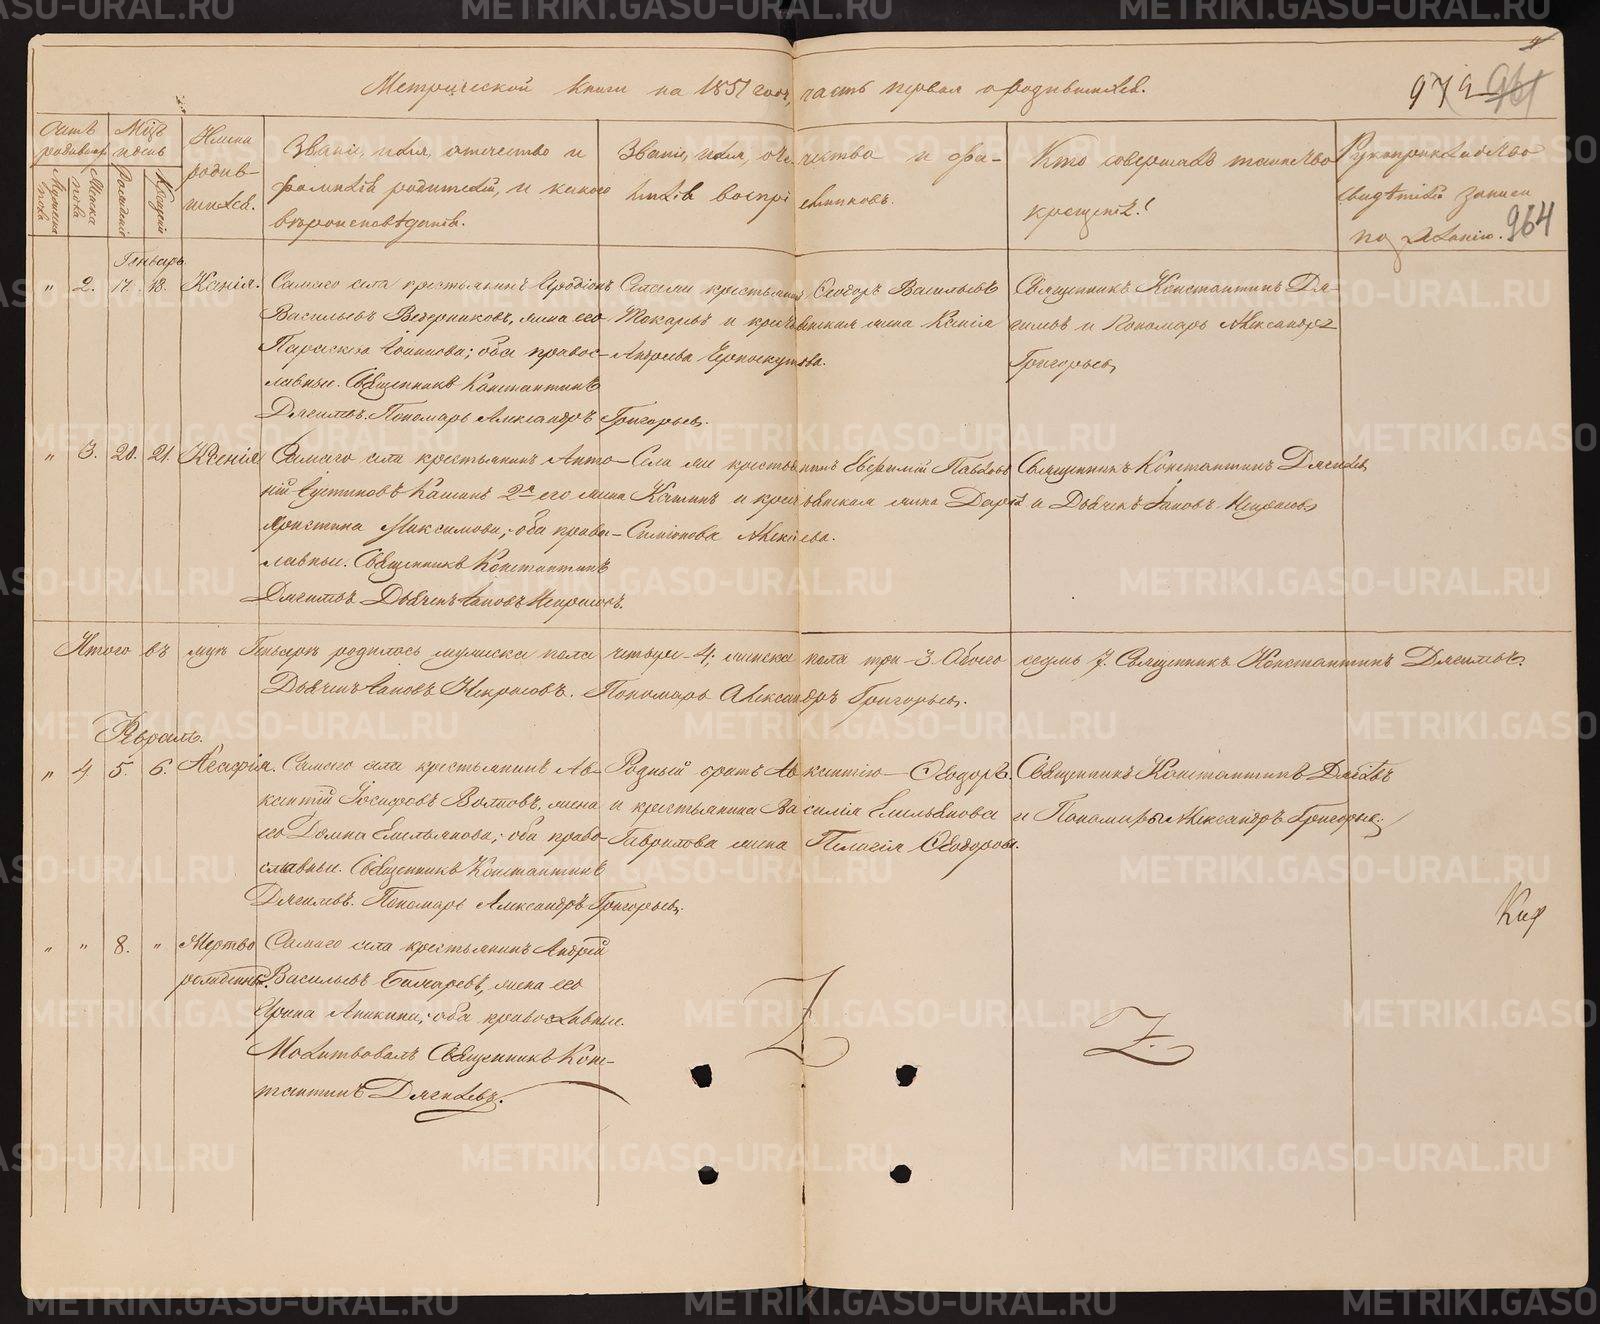 Метрической книги на 1851 годъ, часть первая о родившихся.
972 961
964
Счетъ родившихся
Мцъ и день
Имена родившихся.
Званіе, имя, отечество и фамилія родителей, и какого вѣроисповѣданія.
Званіе, имя, отечество и фамилія воспріемниковъ.
Кто совершалъ таинство крещенія?
Рукоприкладство свидѣтелей записи по желанію.
Мужеска пола
Женска пола
Рожденія
Крещенія
Генварь
" 2. 17. 18. Ксенія.
Самаго села крестьянинъ Иродіонъ
Васильевъ Ведерниковъ, жена его
Параскева; оба правос-
лавные. Священникъ Константинъ
Дягилевъ. Пономарь Александръ Григорьевъ.
Села ми крестьянинъ Ѳеодоръ Васильевъ
Токаревъ и крестьянская жена Ксенія
Андреева.
Священникъ Константинъ Дя-
гилевъ и Пономарь Александръ
Григорьевъ
" 3. 20. 21. Ксенія
Самаго села крестьянинъ Анто-
ній Іустиновъ Кашинъ 2й его жена
Христина Максимова; оба право-
лавные. Священникъ Константинъ
Дягилевъ. Дьячекъ Іаковъ Некрасовъ.
Села ми крестьянинъ Евфимій Павловъ
Кашинъ и крестьянская жена Дарья
Симіонова Алексіева.
Священникъ Константинъ Дягилев
и Дьячекъ Іаковъ Некрасовъ
Итого въ мцѣ Генварѣ родилось мужеска пола четыре - 4; женска пола три - 3. Обоего седмь 7. Священникъ Константинъ Дягилевъ.
Дьячекъ Іаковъ Некрасовъ. Пономарь Александръ Григорьевъ.
Февраль.
" 4 5. 6. Агафія.
Самаго села крестьянинъ Ав-
ксентій Іосифовъ Волковъ, жена
его Домна Емельянова; оба право-
славные. Священникъ Константинъ
Дягилевъ. Пономарь Александръ Григорьевъ.
Родный братъ Авксентію - Ѳеодоръ
и крестьянина Василія Емельянова
Гаврилова жена Пелагія Ѳеодорова.
Священникъ Константинъ Дягилевъ
и Пономарь Александръ Григорьевъ
" " 8. " Мертво рожденный.
Самаго села крестьянинъ Андрей
Васильевъ, жена его
Ирина Аникина; оба православные.
Молитвовалъ Священникъ Конс-
тантинъ Дягилевъ.
Z Z